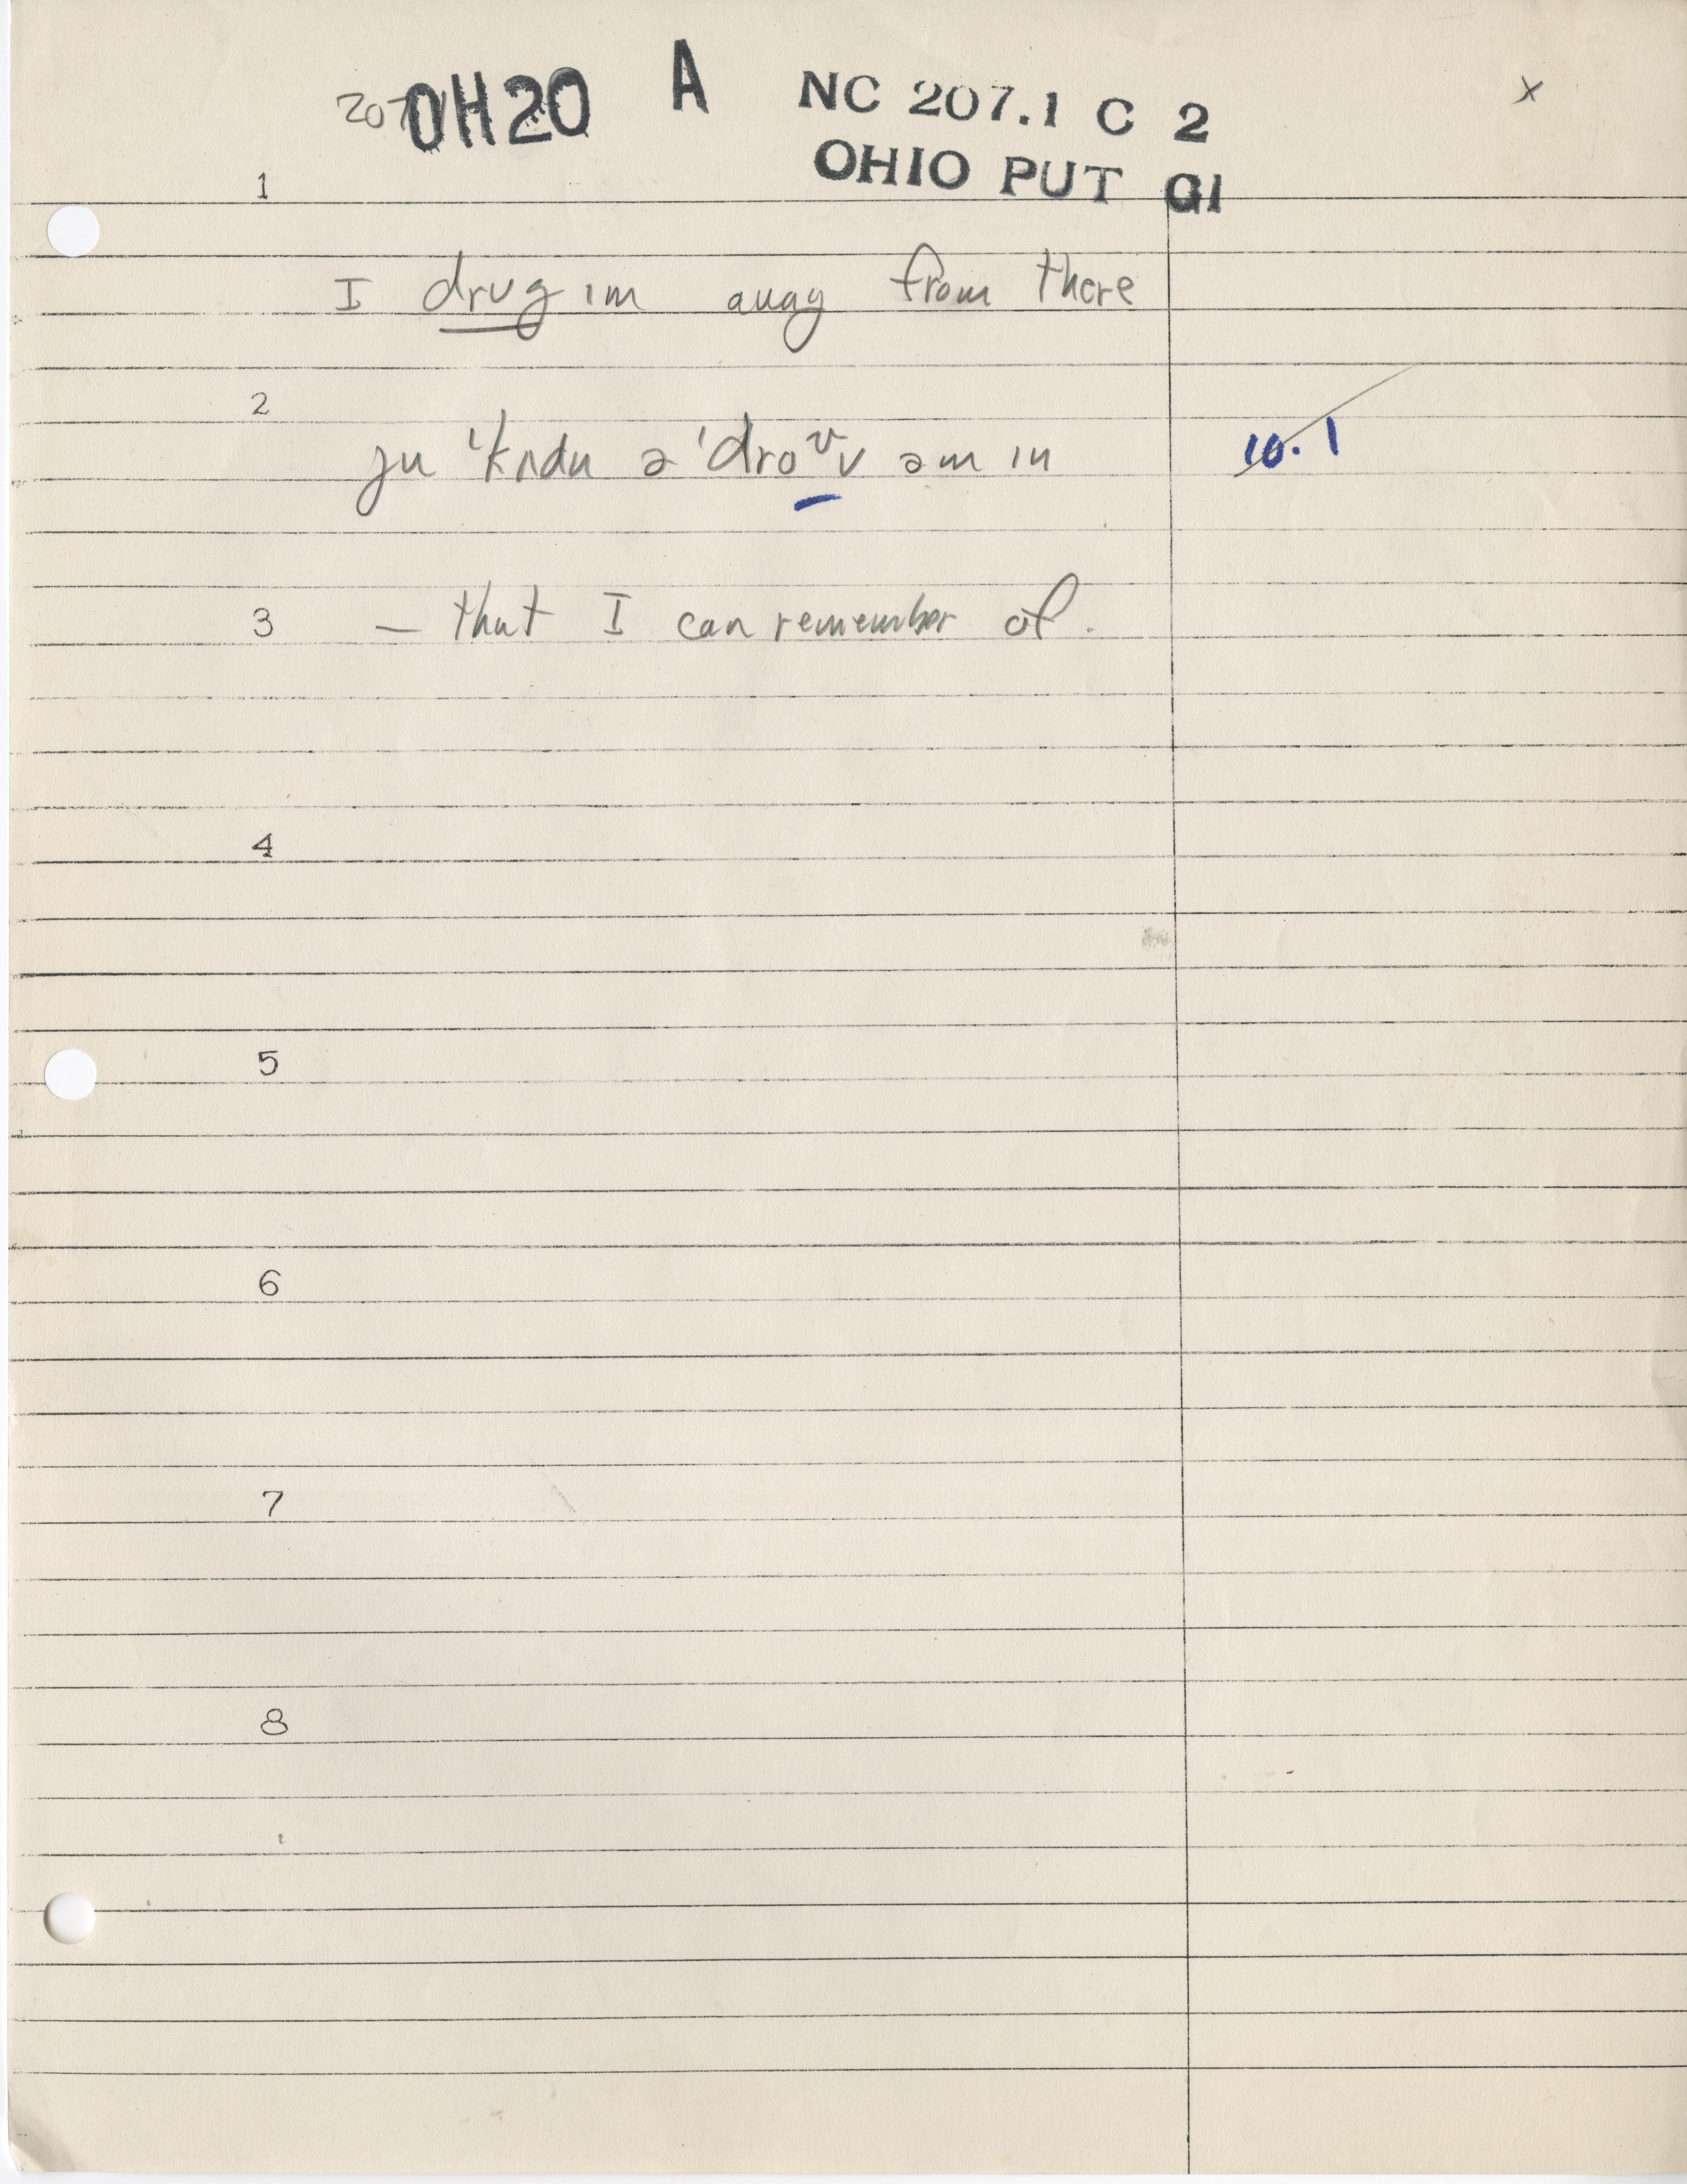 207 OH20 A NC 207.1 C 2 x
OHIO PUT G1
1
I drug im away from there
2
ju 'kʌdn ə 'droᵛv əm in 10.1
3 — that I can remember of.
4
5
6
7
8